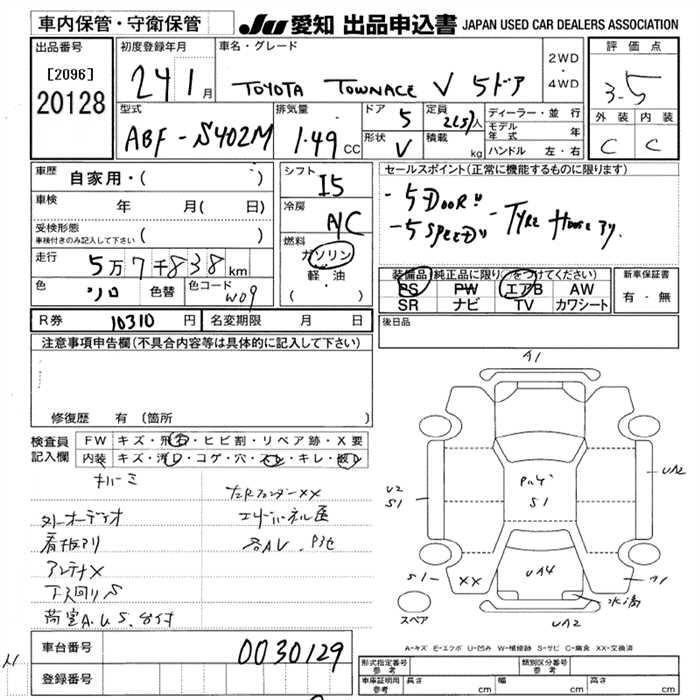 車内保管・守衛保管
JU 愛知 出品申込書 JAPAN USED CAR DEALERS ASSOCIATION
出品番号
[2096]
20128
初度登録年月
24 1 月
車名・グレード
TOYOTA TOWNACE V 5ドア
2WD
・
4WD
評価点
3.5
外装 内装
C C
型式
ABF-S402M
排気量
1.49 CC
ドア 5
形状 V
定員 2(5)人
積載 kg
ディーラー・並行
モデル年式 年
ハンドル 左・右
車歴
自家用・( )
車検 年 月( 日)
受検形態
車検付きのみ記入して下さい ( )
走行
5万7千838km
色
ソロ
色替
色コード
W09
シフト
I5
冷房
A/C
燃料
ガソリン
軽・油
( )
セールスポイント(正常に機能するものに限ります)
- 5 DOOR
- 5 SPEED
装備品 純正品に限り○をつけてください
PS PW エアB AW
SR ナビ TV カワシート
新車保証書
有・無
R券 10310 円
名変期限 月 日
後日品
注意事項申告欄(不具合内容等は具体的に記入して下さい)
修復歴 有(箇所
検査員
記入欄
FW キズ・飛石・ヒビ割・リペア跡・X要
内装 キズ・汚レ・コゲ・穴・スレ・キレ・破レ
ナルーミ
外オーディオ
看板アリ
アンテナX
下廻りS
荷室A.U.S.
左右フェンダーXX
各AU
A1
UA2
U2
S1
S1
S1
XX
UA4
A1
水滴
UA2
スペア
A-キズ E-エクボ U-凹み W-補修跡 S-サビ C-腐食 XX-交換済
車台番号
0030129
登録番号
形式指定番号
参考
類別区分番号
参考
車庫証明用
参考
長さ cm
幅 cm
高さ cm